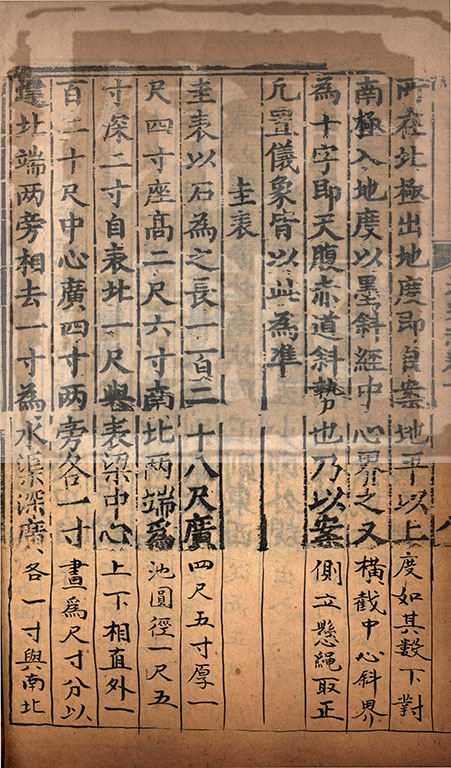 所在北極出地度即自案地平以上度如其數下對
南極入地度以墨斜經中心界之又橫截中心斜界
為十字即天腹赤道斜勢也乃以案側立懸繩取正
凡置儀象皆以此為準
圭表
圭表以石為之長一百二十八尺廣四尺五寸厚一
尺四寸座高二尺六寸南北兩端為池圓徑一尺五
寸深二寸自表北一尺與表梁中心上下相直外一
百二十尺中心廣四寸兩旁各一寸畫為尺寸分以
達北端兩旁相去一寸為水渠深廣各一寸與南北